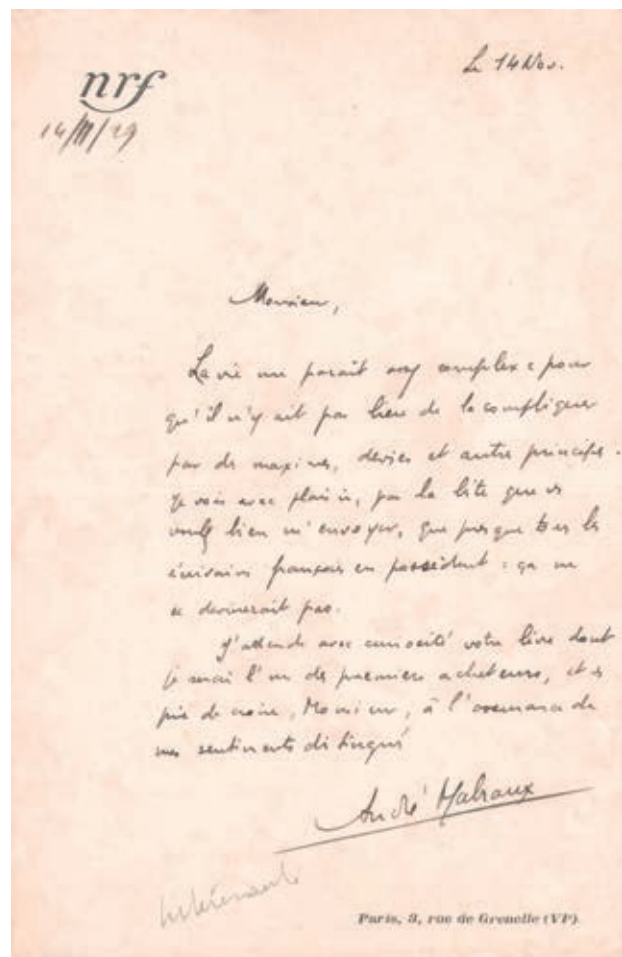 nrf
Le 14 Nov.
Monsieur,
La vie me paraît assez complexe pour
qu'il n'y ait pas lieu de la compliquer
par des maximes, devises et autres principes.
Je vois avec plaisir, par la liste que vs
voulez bien m'envoyer, que presque tous les
écrivains français en possèdent : ça ne
se devinerait pas.
J'attends avec curiosité votre livre dont
je serai l'un des premiers acheteurs, et vs
prie de croire, Monsieur, à l'assurance de
mes sentiments distingués
André Malraux
Paris, 3, rue de Grenelle (VIe)